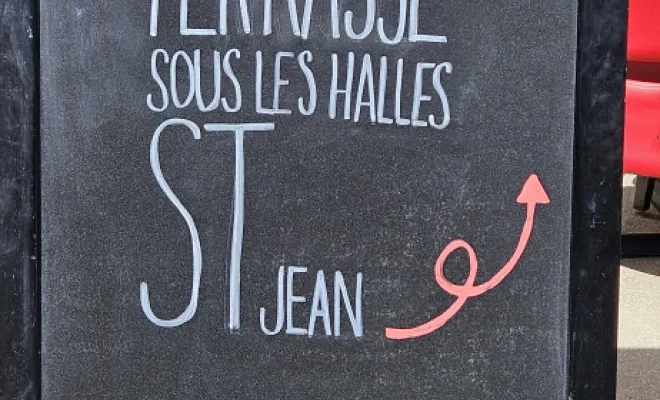 TERRASSE
SOUS LES HALLES
ST JEAN